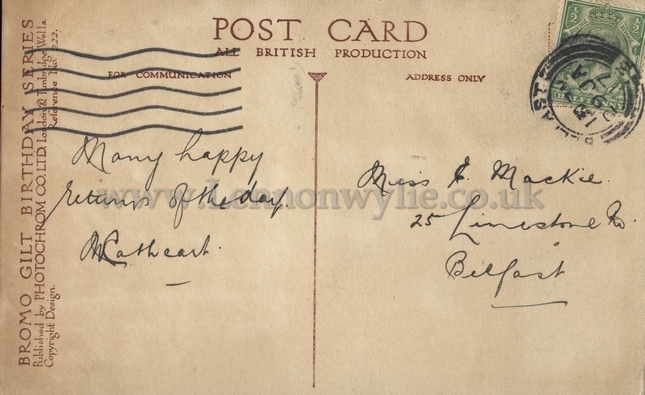 POST CARD
ALL BRITISH PRODUCTION
FOR COMMUNICATION
ADDRESS ONLY
BROMO GILT BIRTHDAY SERIES
Published by PHOTOCHROM CO. LTD London & Tunbridge Wells.
Copyright Design. Reference No. 222.
½ ½
BELFAST
Many happy
returns of the day.
Cathcart.
Miss Mackie.
25 Limestone Rd.
Belfast
www.Lennonwylie.co.uk